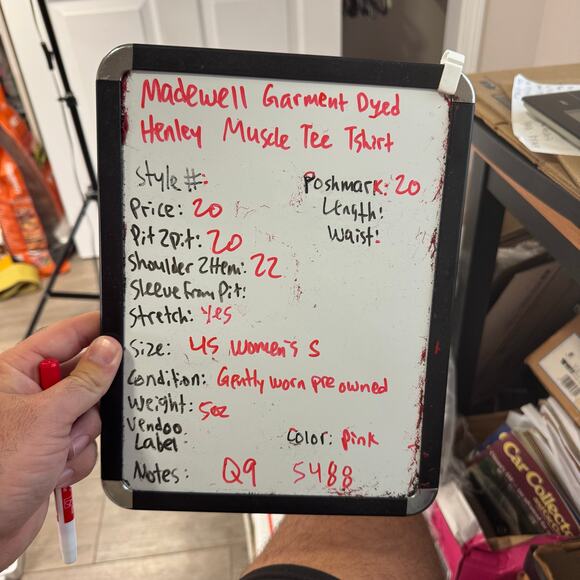 Madewell Garment Dyed
Henley Muscle Tee Tshirt
Style #:
Poshmark: 20
Price: 20
Length:
Pit 2 pit: 20
Waist:
Shoulder 2 Hem: 22
Sleeve From Pit:
Stretch: yes
Size: US Women's S
Condition: Gently worn pre owned
Weight: 5oz
Vendoo
Label:
Color: pink
Notes: Q9 5488
Car Collect